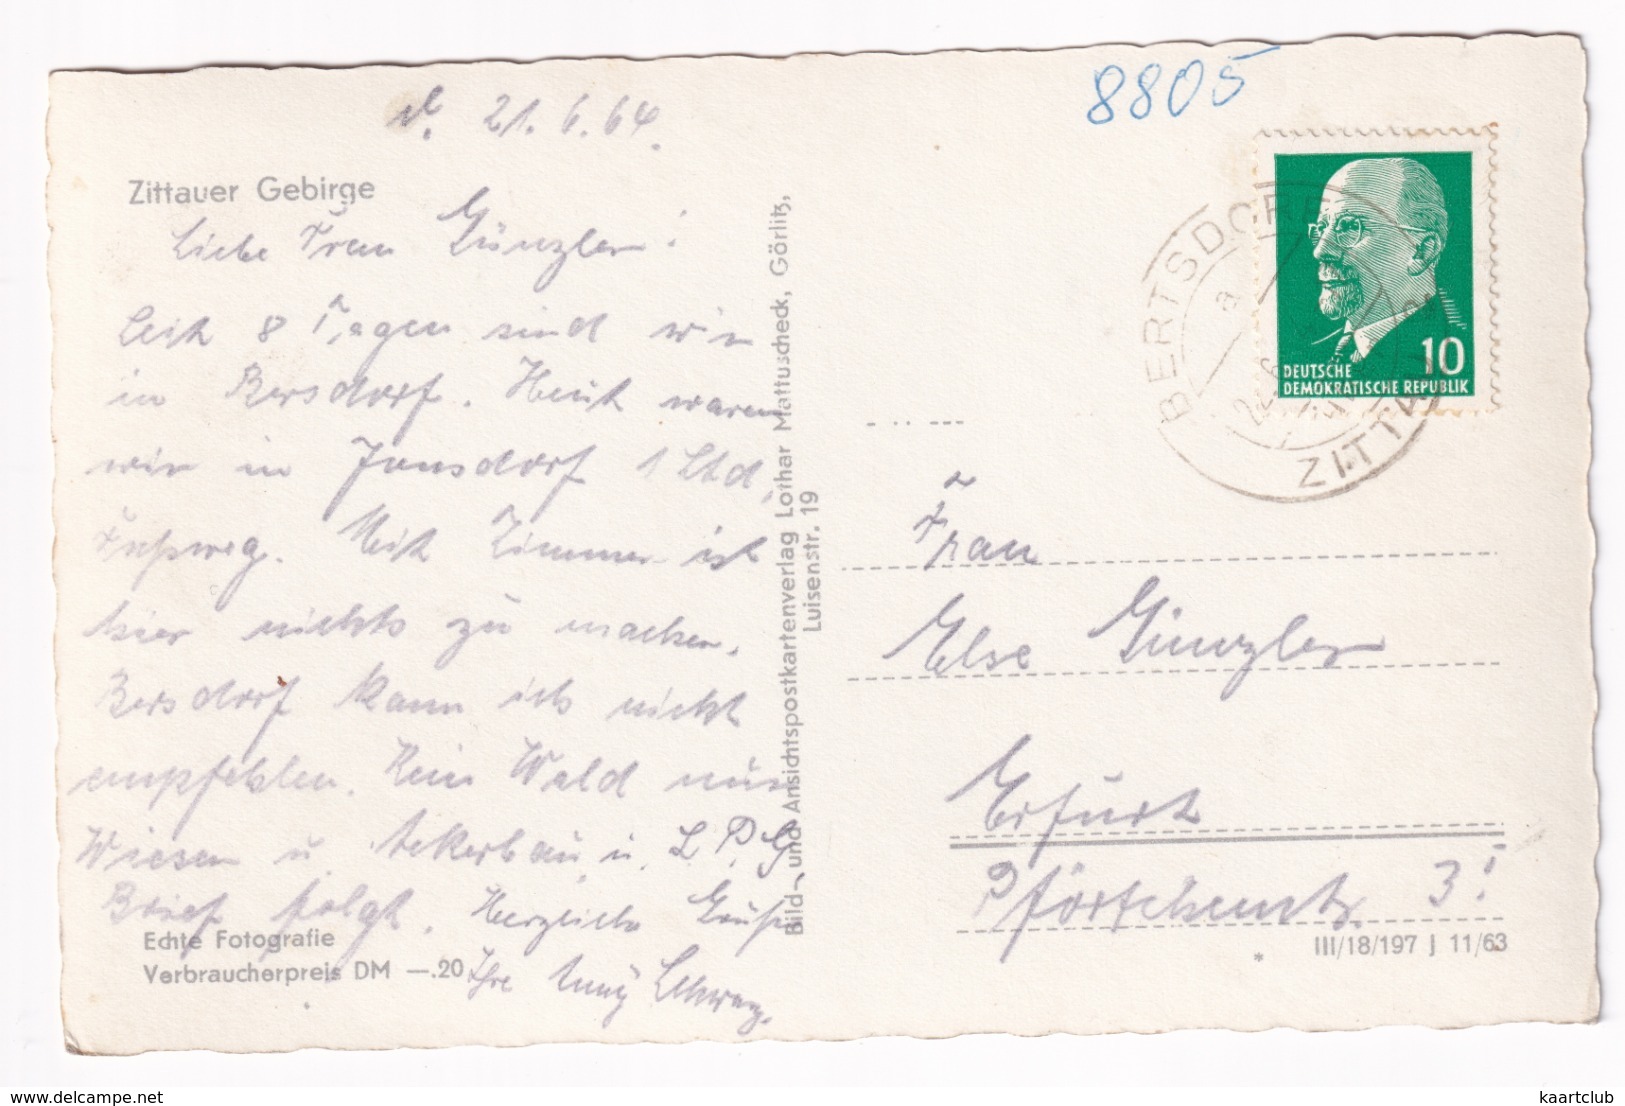 d. 21.6.64.
8805
Zittauer Gebirge
Liebe Frau Günzler!
Seit 8 Tagen sind wir
in Bersdorf. Heute waren
wir in Jonsdorf 1 Std.
Fußweg. Mit Zimmer ist
hier nichts zu machen.
Bersdorf kann ich nicht
empfehlen. Kein Wald nur
Wiesen u. Ackerbau u. L.P.G
Brief folgt. Herzliche Grüße
Ihre Schwarz.
Echte Fotografie
Verbraucherpreis DM —.20
Bild- und Ansichtspostkartenverlag Lothar Mattuscheck, Görlitz,
Luisenstr. 19
BERTSDORF
a
ZITTAU
10
DEUTSCHE
DEMOKRATISCHE REPUBLIK
Frau
Else Günzler
Erfurt
Pförtchenstr. 3!
* III/18/197 J 11/63
delcampe.net
kaartclub